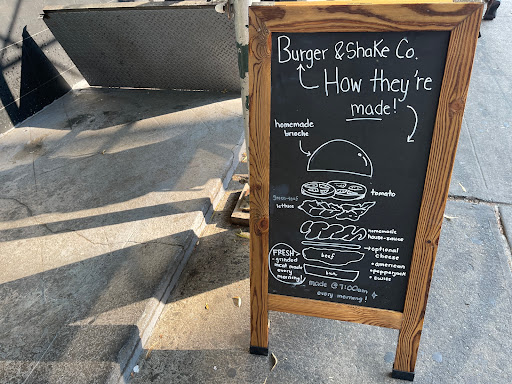 Burger & Shake Co.
How they're
made!
homemade
brioche
tomato
green-leaf
lettuce
homemade
house-sauce
optional
cheese
• american
• pepperjack
• swiss
FRESH
grinded
meat made
every
morning!
beef
bun
made @ 7:00am
every morning!